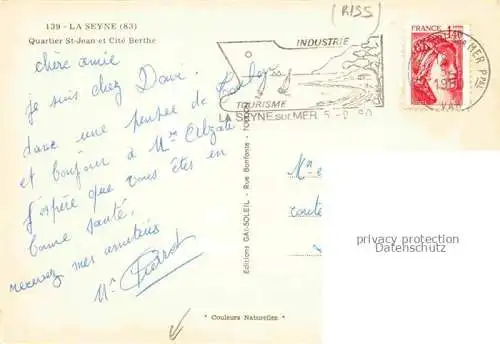 (RISS)
139 - LA SEYNE (83)
Quartier St-Jean et Cité Berthe
INDUSTRIE
TOURISME
LA SEYNE sur MER 5-9 80
FRANCE 1,40
MER PAL
VAR
chère amie
je suis chez Dave.
dans une pensée de
et bonjour à Mme
j'espère que vous êtes en
bonne santé.
recevez mes amitiés
Mr Pierrot
Editions GAI-SOLEIL - Rue Bonfante
Mme
route
privacy protection
Datenschutz
" Couleurs Naturelles "